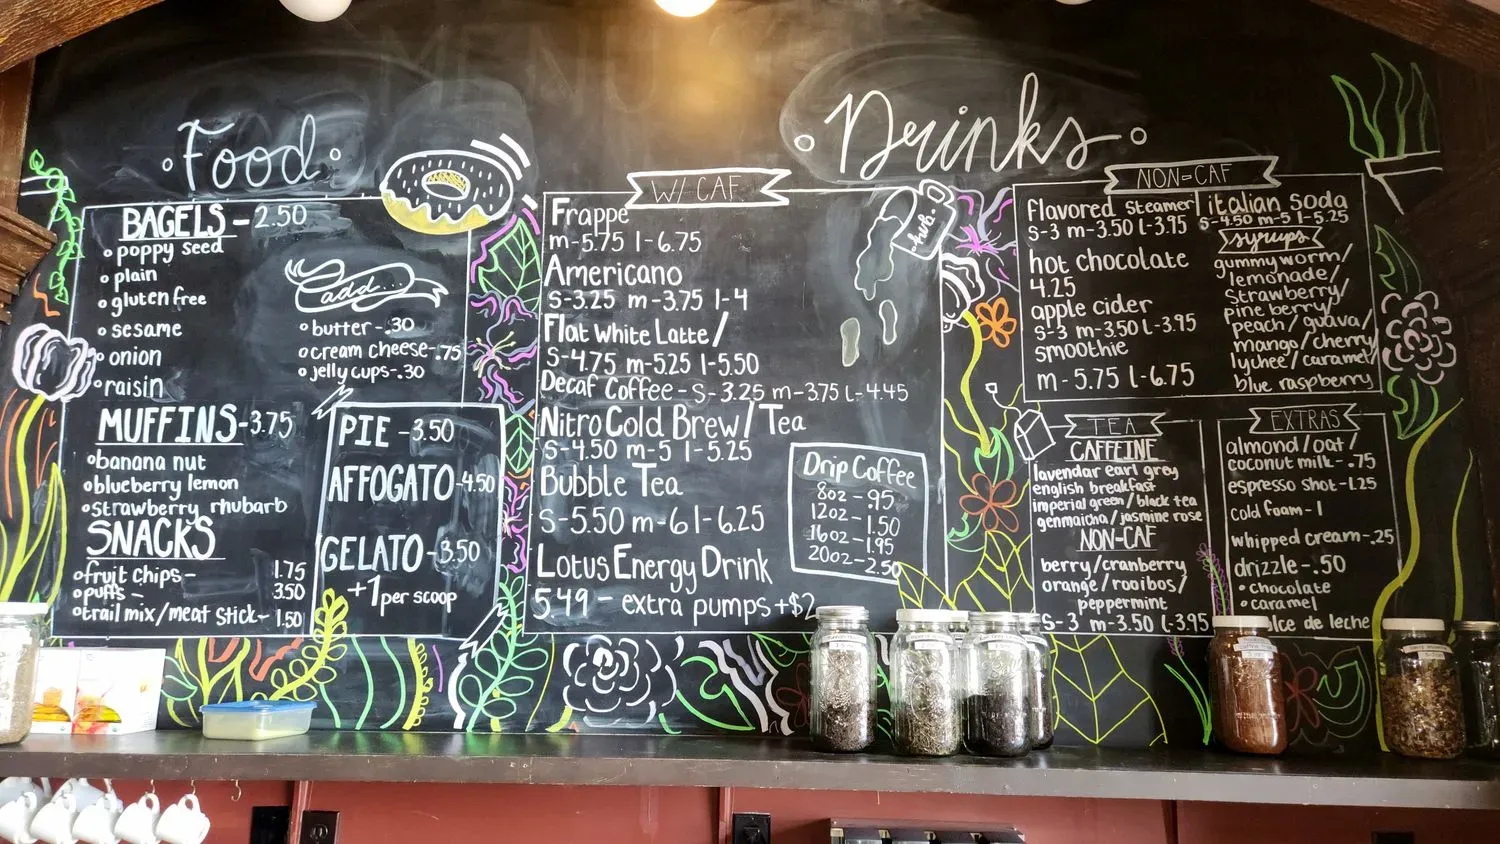 Food
BAGELS - 2.50
poppy seed
plain
gluten free
sesame
onion
raisin
add...
butter - .30
cream cheese - .75
jelly cups - .30
MUFFINS - 3.75
banana nut
blueberry lemon
strawberry rhubarb
SNACKS
fruit chips - 1.75
puffs - 3.50
trail mix/meat stick - 1.50
PIE - 3.50
AFFOGATO - 4.50
GELATO - 3.50
+1 per scoop
Drinks
W/ CAF
Frappe
m - 5.75 l - 6.75
Americano
s - 3.25 m - 3.75 l - 4
Flat White Latte/
s - 4.75 m - 5.25 l - 5.50
Decaf Coffee - s - 3.25 m - 3.75 l - 4.45
Nitro Cold Brew/Tea
s - 4.50 m - 5 l - 5.25
Bubble Tea
s - 5.50 m - 6 l - 6.25
Lotus Energy Drink
5.49 - extra pumps + $2
Drip Coffee
8oz - .95
12oz - 1.50
16oz - 1.95
20oz - 2.50
NON-CAF
flavored steamer/
s - 3 m - 3.50 l - 3.95
hot chocolate
4.25
apple cider
s - 3 m - 3.50 l - 3.95
smoothie
m - 5.75 l - 6.75
italian soda
s - 4.50 m - 5 l - 5.25
syrups
gummy worm/
lemonade/
strawberry/
pine berry/
peach/guava/
mango/cherry/
lychee/caramel/
blue raspberry
TEA
CAFFEINE
lavendar earl grey
english breakfast
imperial green/black tea
genmaicha/jasmine rose
NON-CAF
berry/cranberry
orange/rooibos/
peppermint
s - 3 m - 3.50 l - 3.95
EXTRAS
almond/oat/
coconut milk - .75
espresso shot - 1.25
cold foam - 1
whipped cream - .25
drizzle - .50
chocolate
caramel
dulce de leche